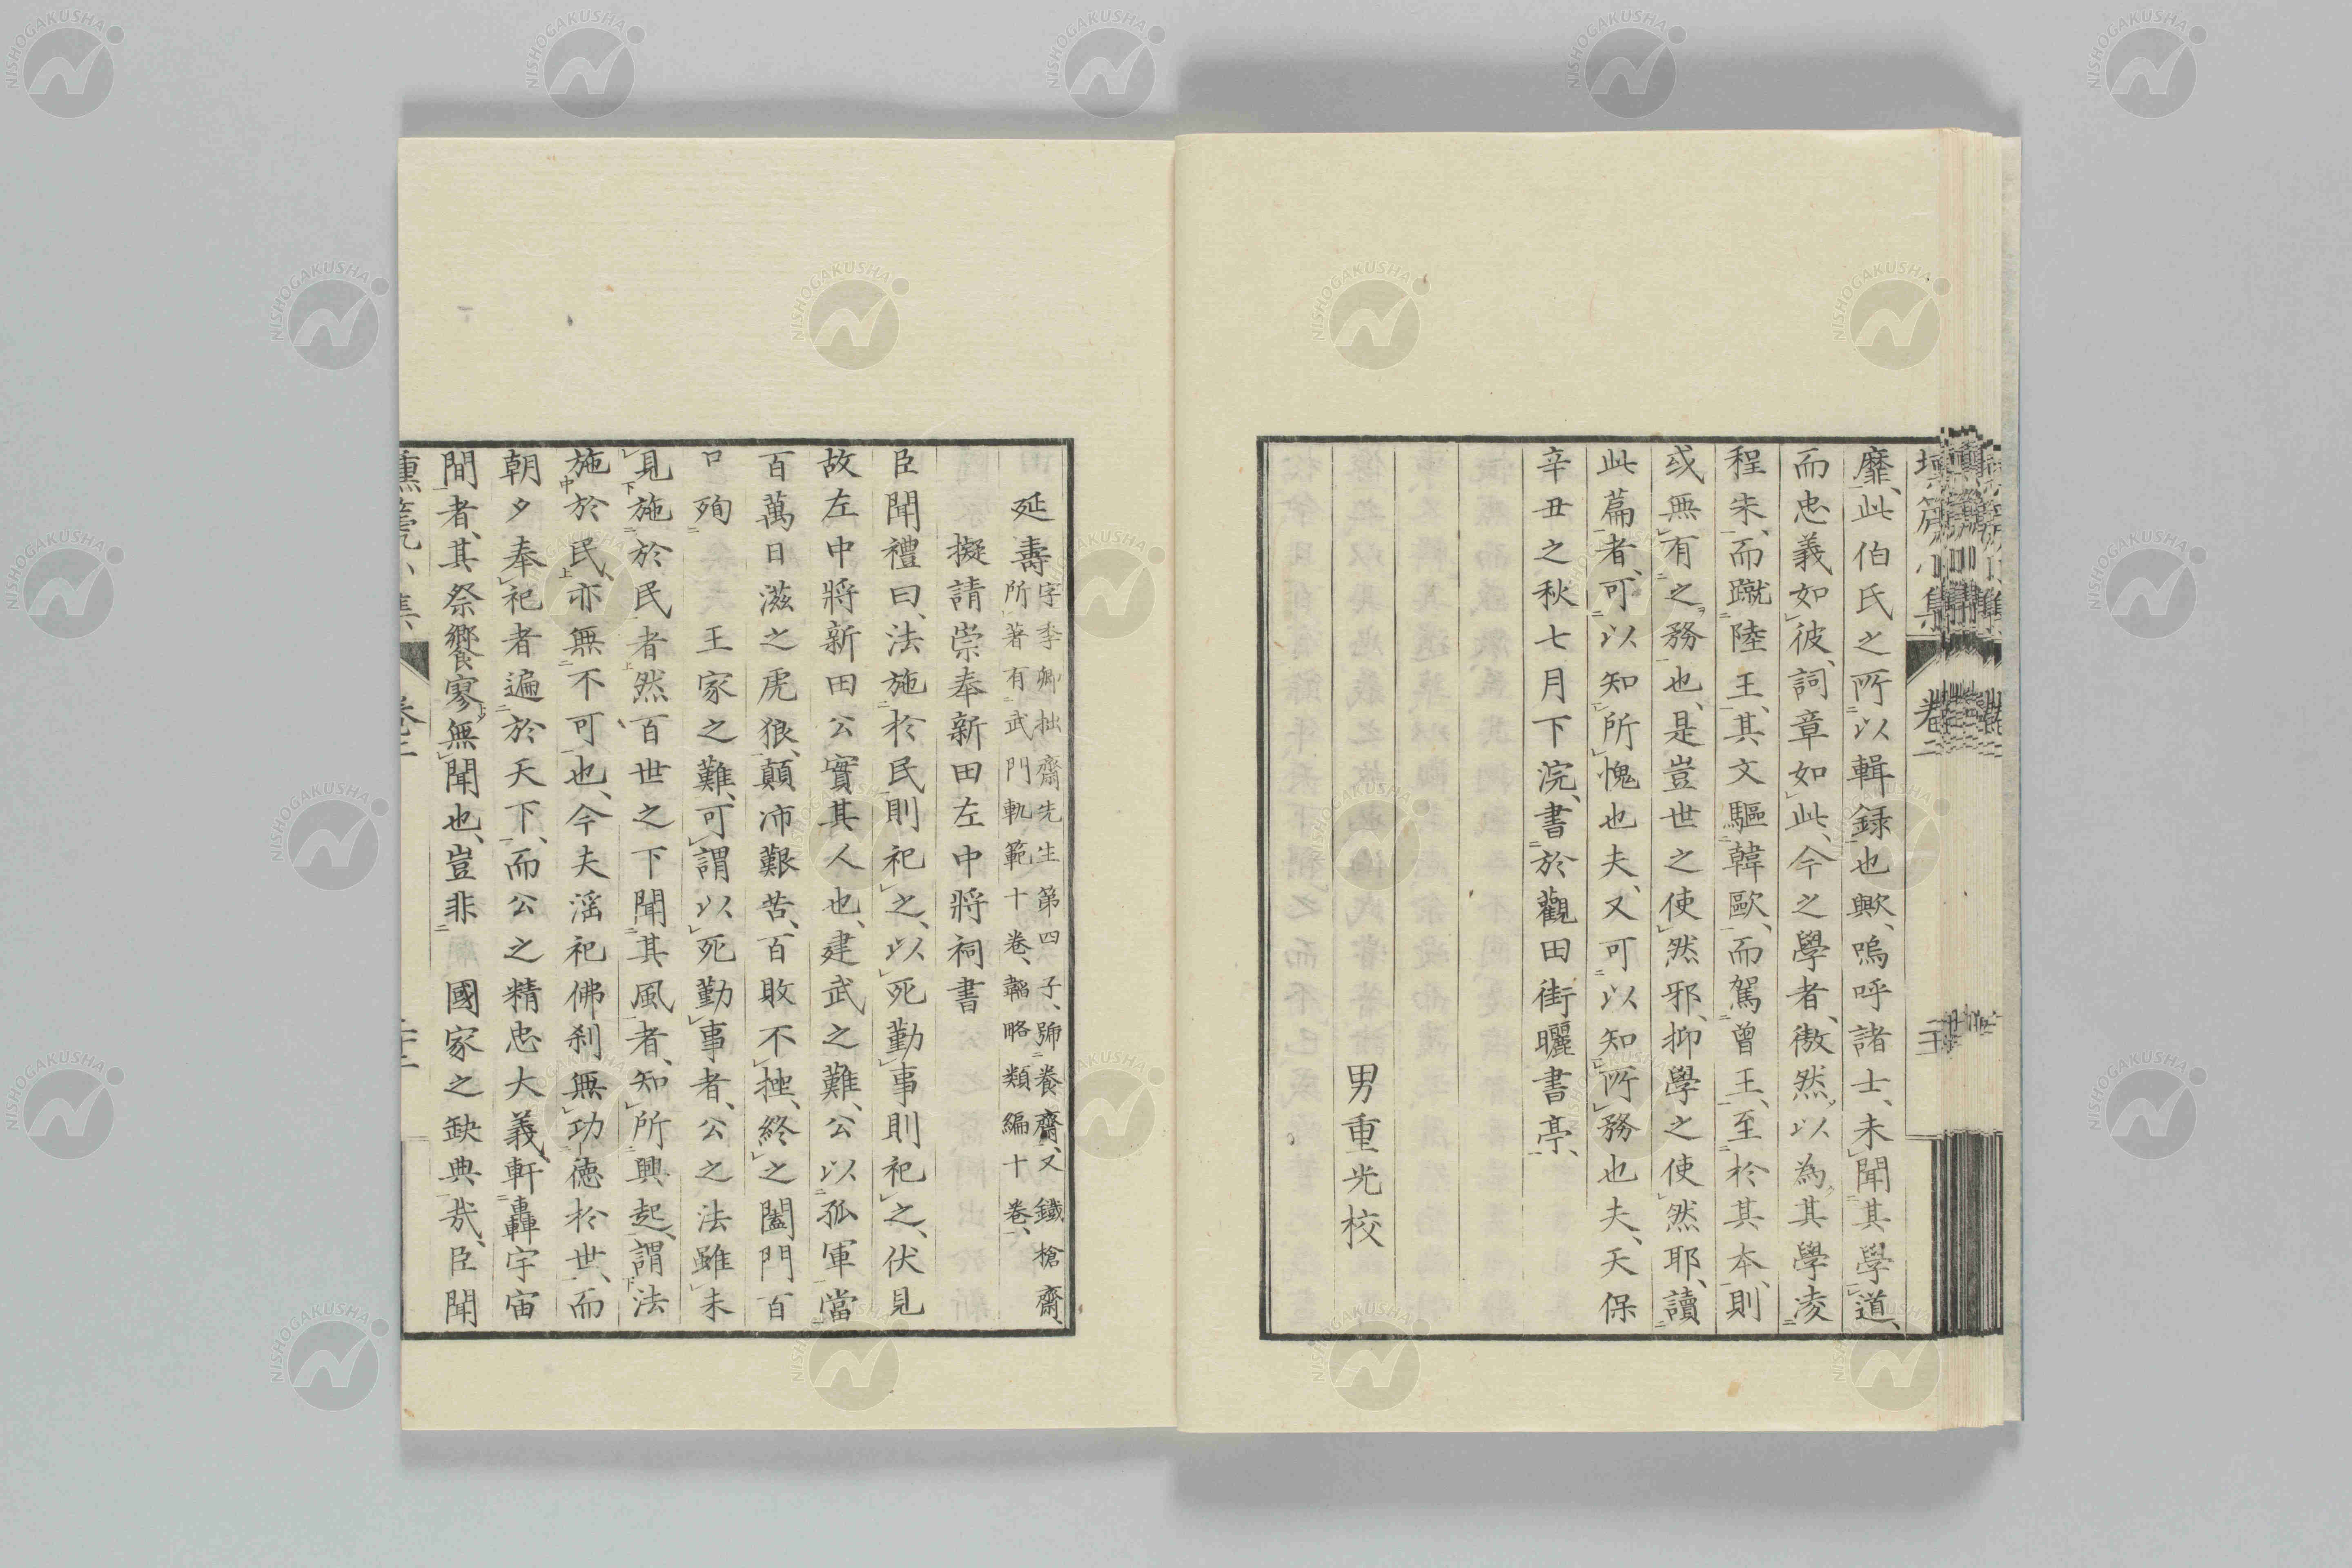 靡、此伯氏之所以輯録也歟、嗚呼諸士、未聞其學道、
而忠義如彼、詞章如此、今之學者、傲然以為其學凌
程朱、而蹴陸王、其文驅韓歐、而駕曾王、至於其本、則
或無有之務也、是豈世之使然邪、抑學之使然耶、讀
此篇者、可以知所愧也夫、又可以知所務也夫、天保
辛丑之秋七月下浣、書於觀田街曬書亭、
男重光校
延壽字季卿拙齋先生第四子、號養齋、又鐵槍齋
所著有武門軌範十卷、韜略類編十卷、
擬請崇奉新田左中將祠書
臣聞禮曰、法施於民則祀之、以死勤事則祀之、伏見
故左中將新田公實其人也、建武之難、公以孤軍當
百萬日滋之虎狼、顛沛艱苦、百敗不撓、終之闔門百
口殉王家之難、可謂以死勤事者、公之法雖未
見施於民者然百世之下聞其風者、知所興起、謂法
施於民、亦無不可也、今夫滛祀佛刹無功德於世、而
朝夕奉祀者遍於天下、而公之精忠大義、軒轟宇宙
間者、其祭饗寥無聞也、豈非國家之缺典哉、臣聞
卷二
NISHOGAKUSHA